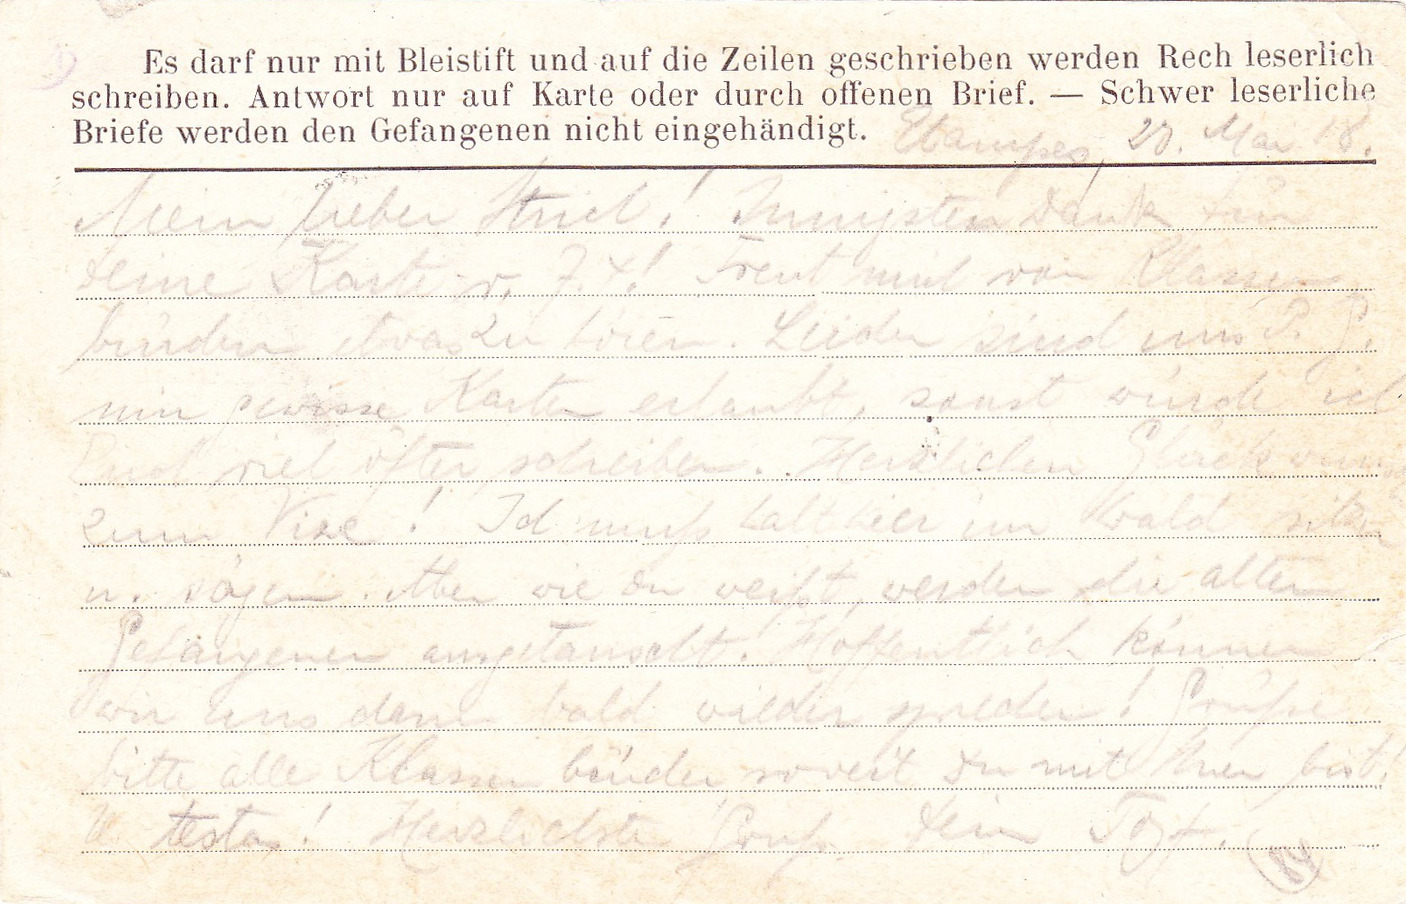 Es darf nur mit Bleistift und auf die Zeilen geschrieben werden Rech leserlich
schreiben. Antwort nur auf Karte oder durch offenen Brief. — Schwer leserliche
Briefe werden den Gefangenen nicht eingehändigt.
Etampes, 20. Mai 18.
Mein lieber Strick! Innigsten Dank für
deine Karte v. 7.4! Freut mich von Klassen
brüdern etwas zu hören. Leider sind uns P. G.
nur gewisse Karten erlaubt, sonst würde ich
Euch viel öfter schreiben. Herzlichen Glückwunsch
zum Vize! Ich muß halt hier im Wald sitzen
u. sägen. Aber wie du weißt, werden die alten
Gefangenen ausgetauscht. Hoffentlich können
wir uns dann bald wieder sprechen! Grüße
bitte alle Klassenbrüder soweit du mit ihnen bist!
Herzlichste Gruß. Dein